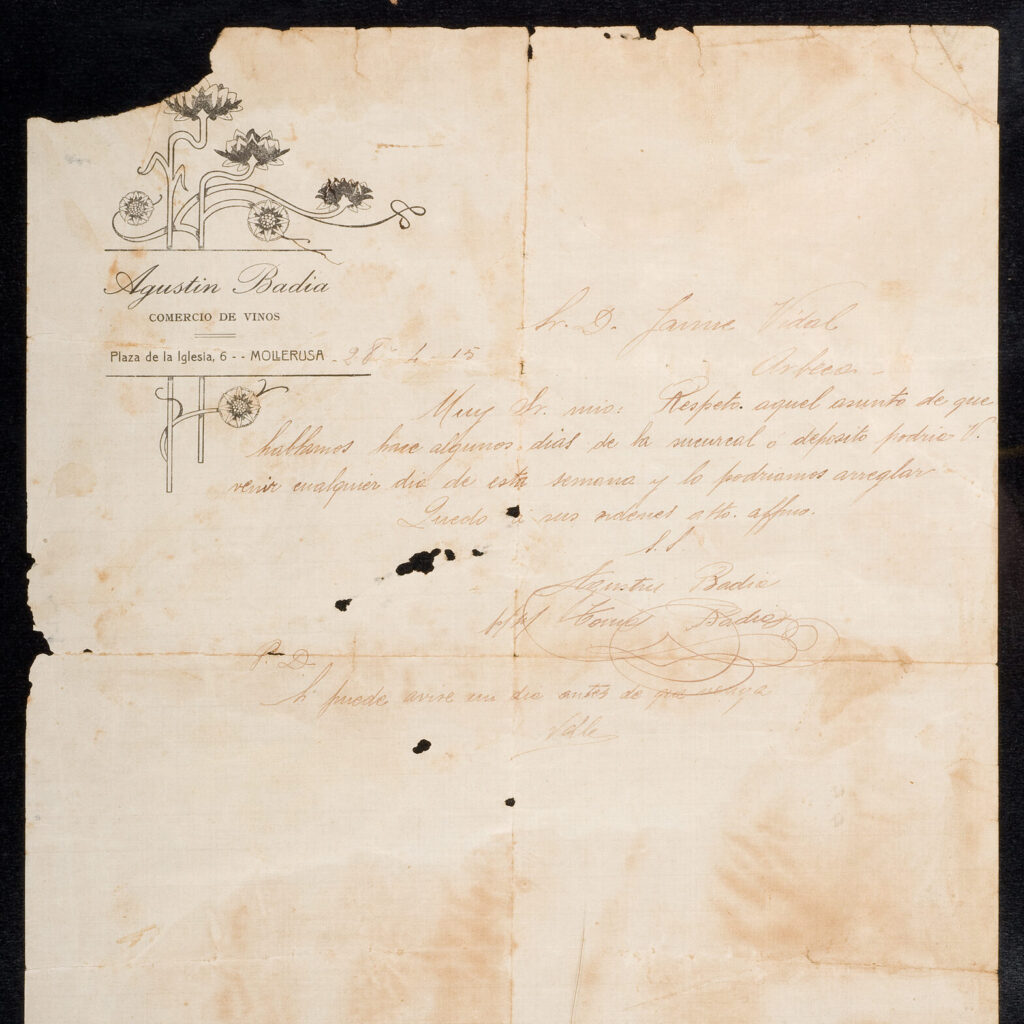 Agustin Badia
COMERCIO DE VINOS
Plaza de la Iglesia, 6 - - MOLLERUSA - 28 - 4 - 15
Sr. D. Jaime Vidal
Arbeca -
Muy Sr. mio: Respeto. aquel asunto de que
hablamos hace algunos dias de la sucursal ó deposito podria V.
venir cualquier dia de esta semana y lo podriamos arreglar
Quedo á sus ordenes atto. affmo.
S. S
Agustin Badia
Tomás Badia
P. D.
Si puede avise un dia antes de que venga
Vale